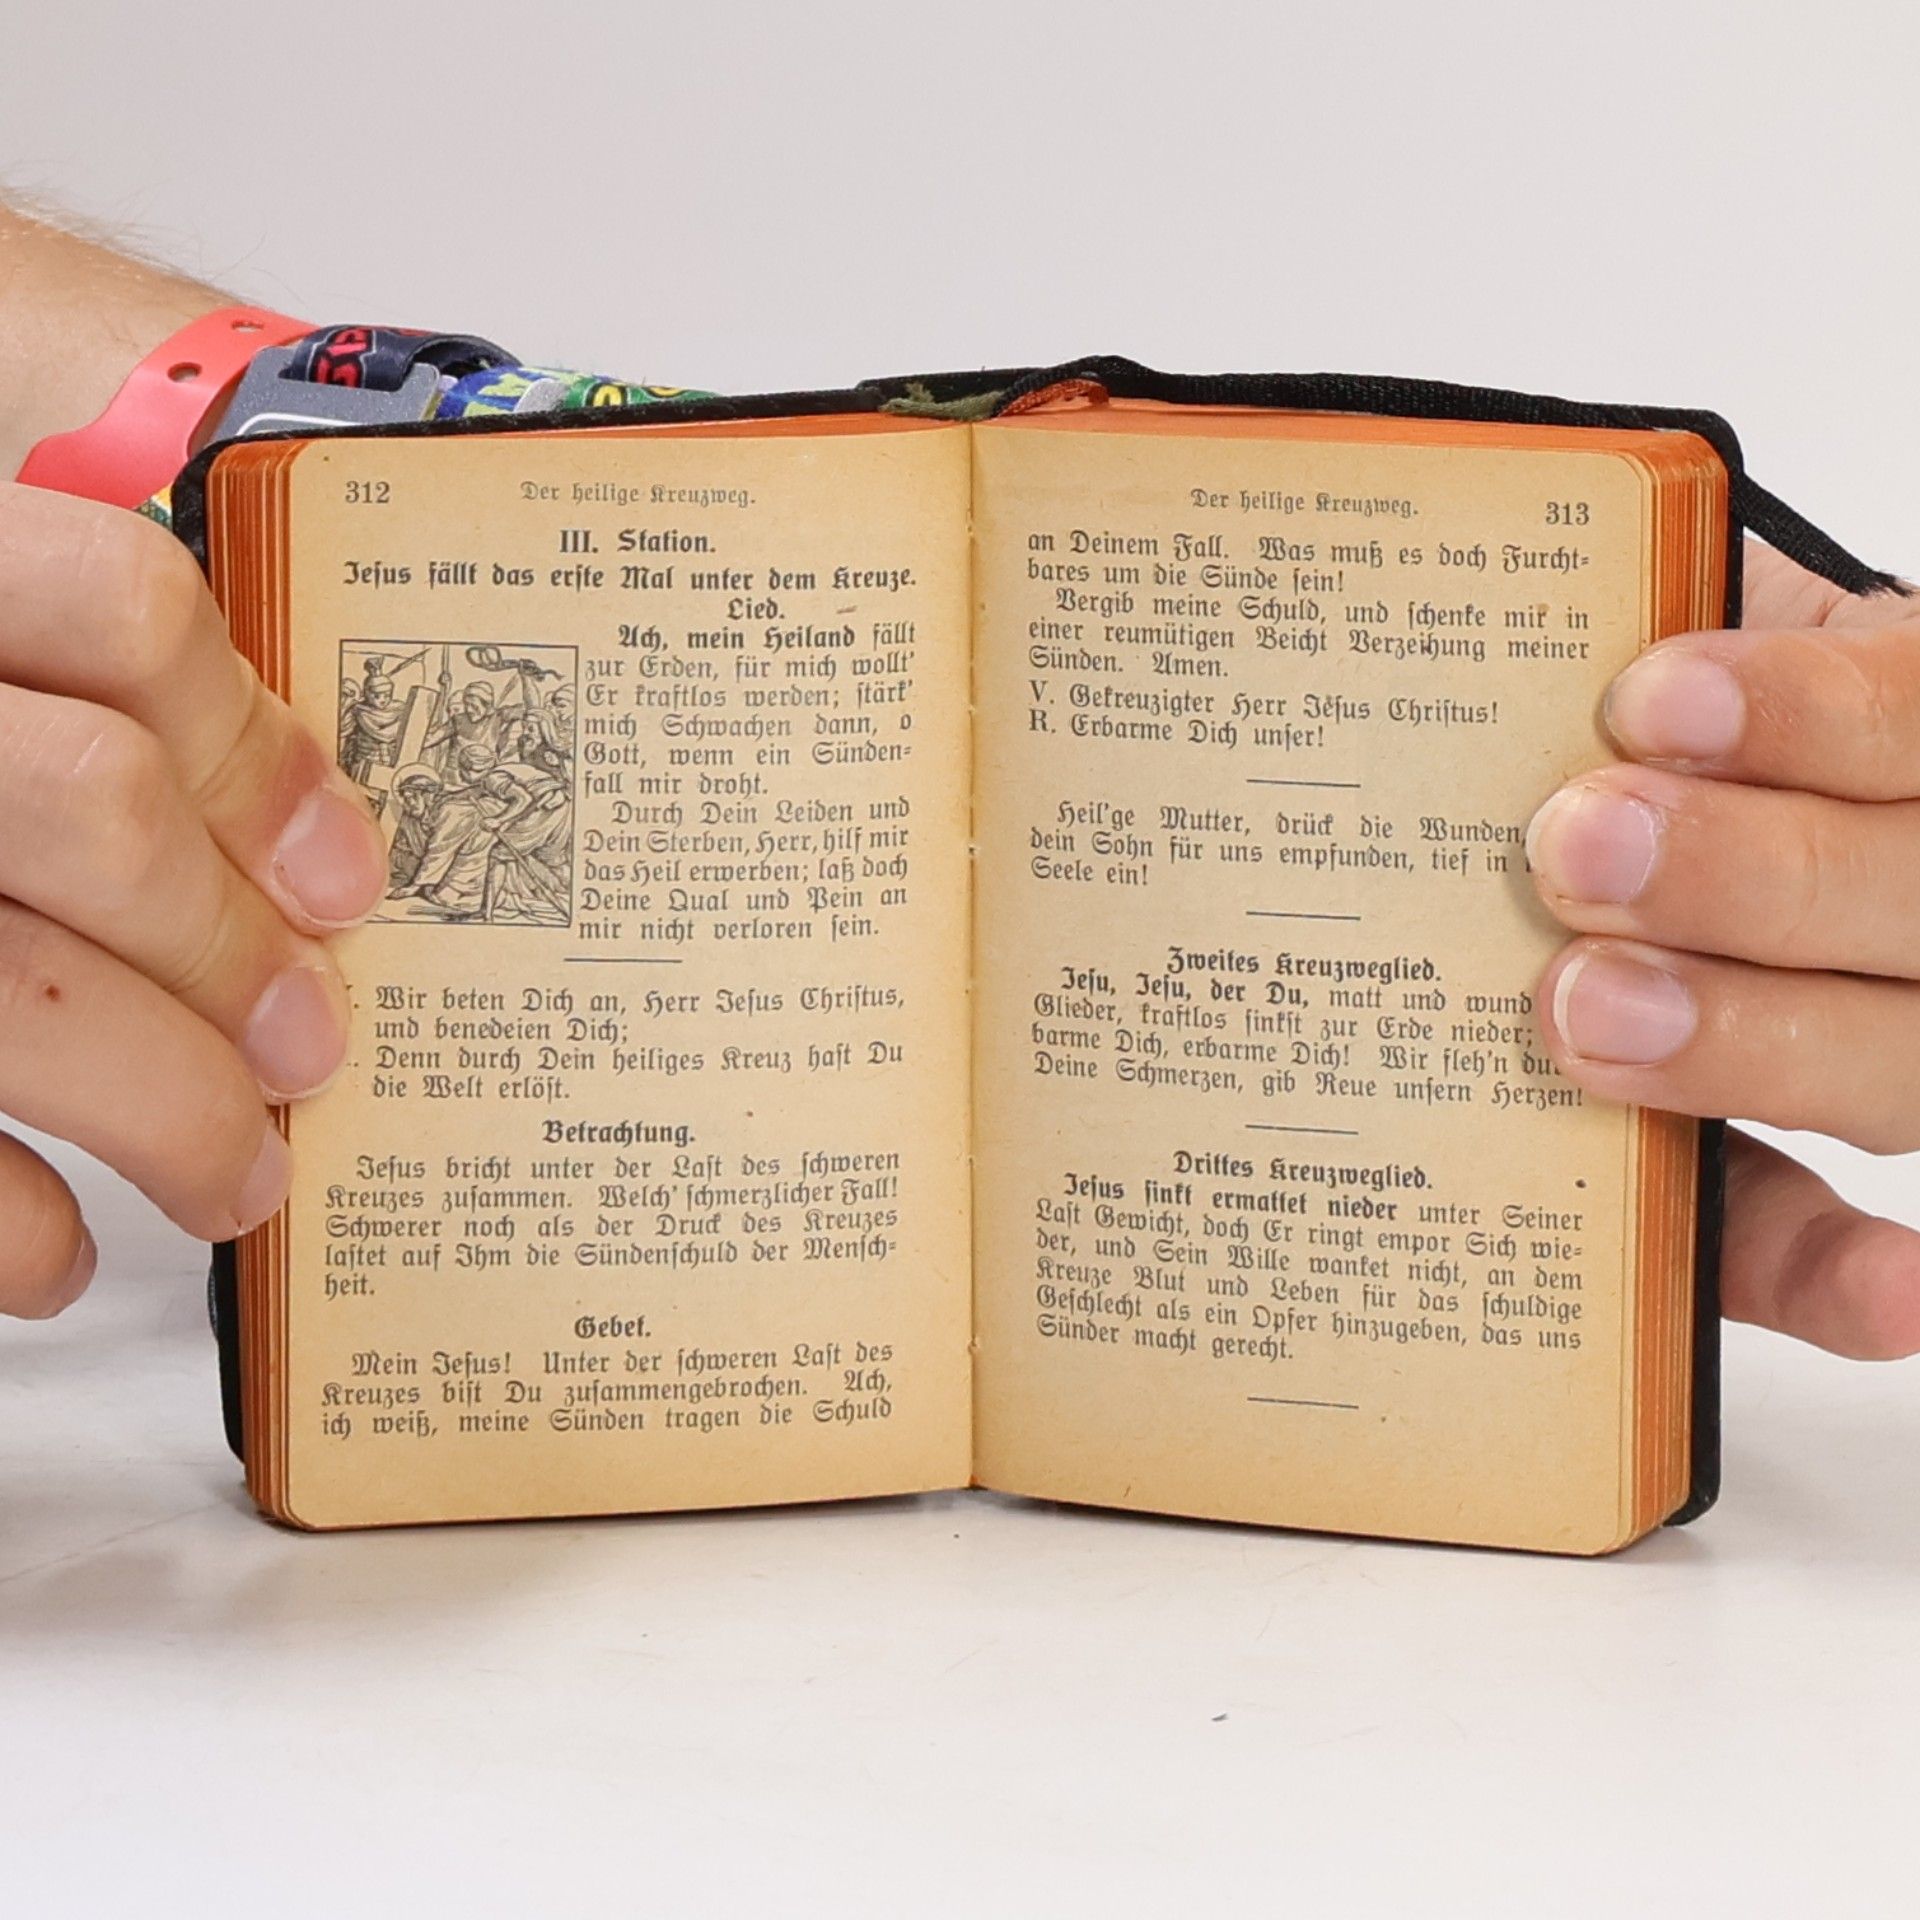 312
Der heilige Kreuzweg.
III. Station.
Jesus fällt das erste Mal unter dem Kreuze.
Lied.
Ach, mein Heiland fällt
zur Erden, für mich wollt'
Er kraftlos werden; stärk'
mich Schwachen dann, o
Gott, wenn ein Sünden-
fall mir droht.
Durch Dein Leiden und
Dein Sterben, Herr, hilf mir
das Heil erwerben; laß doch
Deine Qual und Pein an
mir nicht verloren sein.
Wir beten Dich an, Herr Jesus Christus,
und benedeien Dich;
Denn durch Dein heiliges Kreuz hast Du
die Welt erlöst.
Betrachtung.
Jesus bricht unter der Last des schweren
Kreuzes zusammen. Welch' schmerzlicher Fall!
Schwerer noch als der Druck des Kreuzes
lastet auf Ihm die Sündenschuld der Mensch-
heit.
Gebet.
Mein Jesus! Unter der schweren Last des
Kreuzes bist Du zusammengebrochen. Ach,
ich weiß, meine Sünden tragen die Schuld
Der heilige Kreuzweg.
313
an Deinem Fall. Was muß es doch Furcht-
bares um die Sünde sein!
Vergib meine Schuld, und schenke mir in
einer reumütigen Beicht Verzeihung meiner
Sünden. Amen.
V. Gekreuzigter Herr Jesus Christus!
R. Erbarme Dich unser!
Heil'ge Mutter, drück die Wunden,
dein Sohn für uns empfunden, tief in
Seele ein!
Zweites Kreuzweglied.
Jesu, Jesu, der Du, matt und wund
Glieder, kraftlos sinkst zur Erde nieder;
barme Dich, erbarme Dich! Wir fleh'n
Deine Schmerzen, gib Reue unsern Herzen!
Drittes Kreuzweglied.
Jesus sinkt ermattet nieder unter Seiner
Last Gewicht, doch Er ringt empor Sich wie-
der, und Sein Wille wanket nicht, an dem
Kreuze Blut und Leben für das schuldige
Geschlecht als ein Opfer hinzugeben, das uns
Sünder macht gerecht.